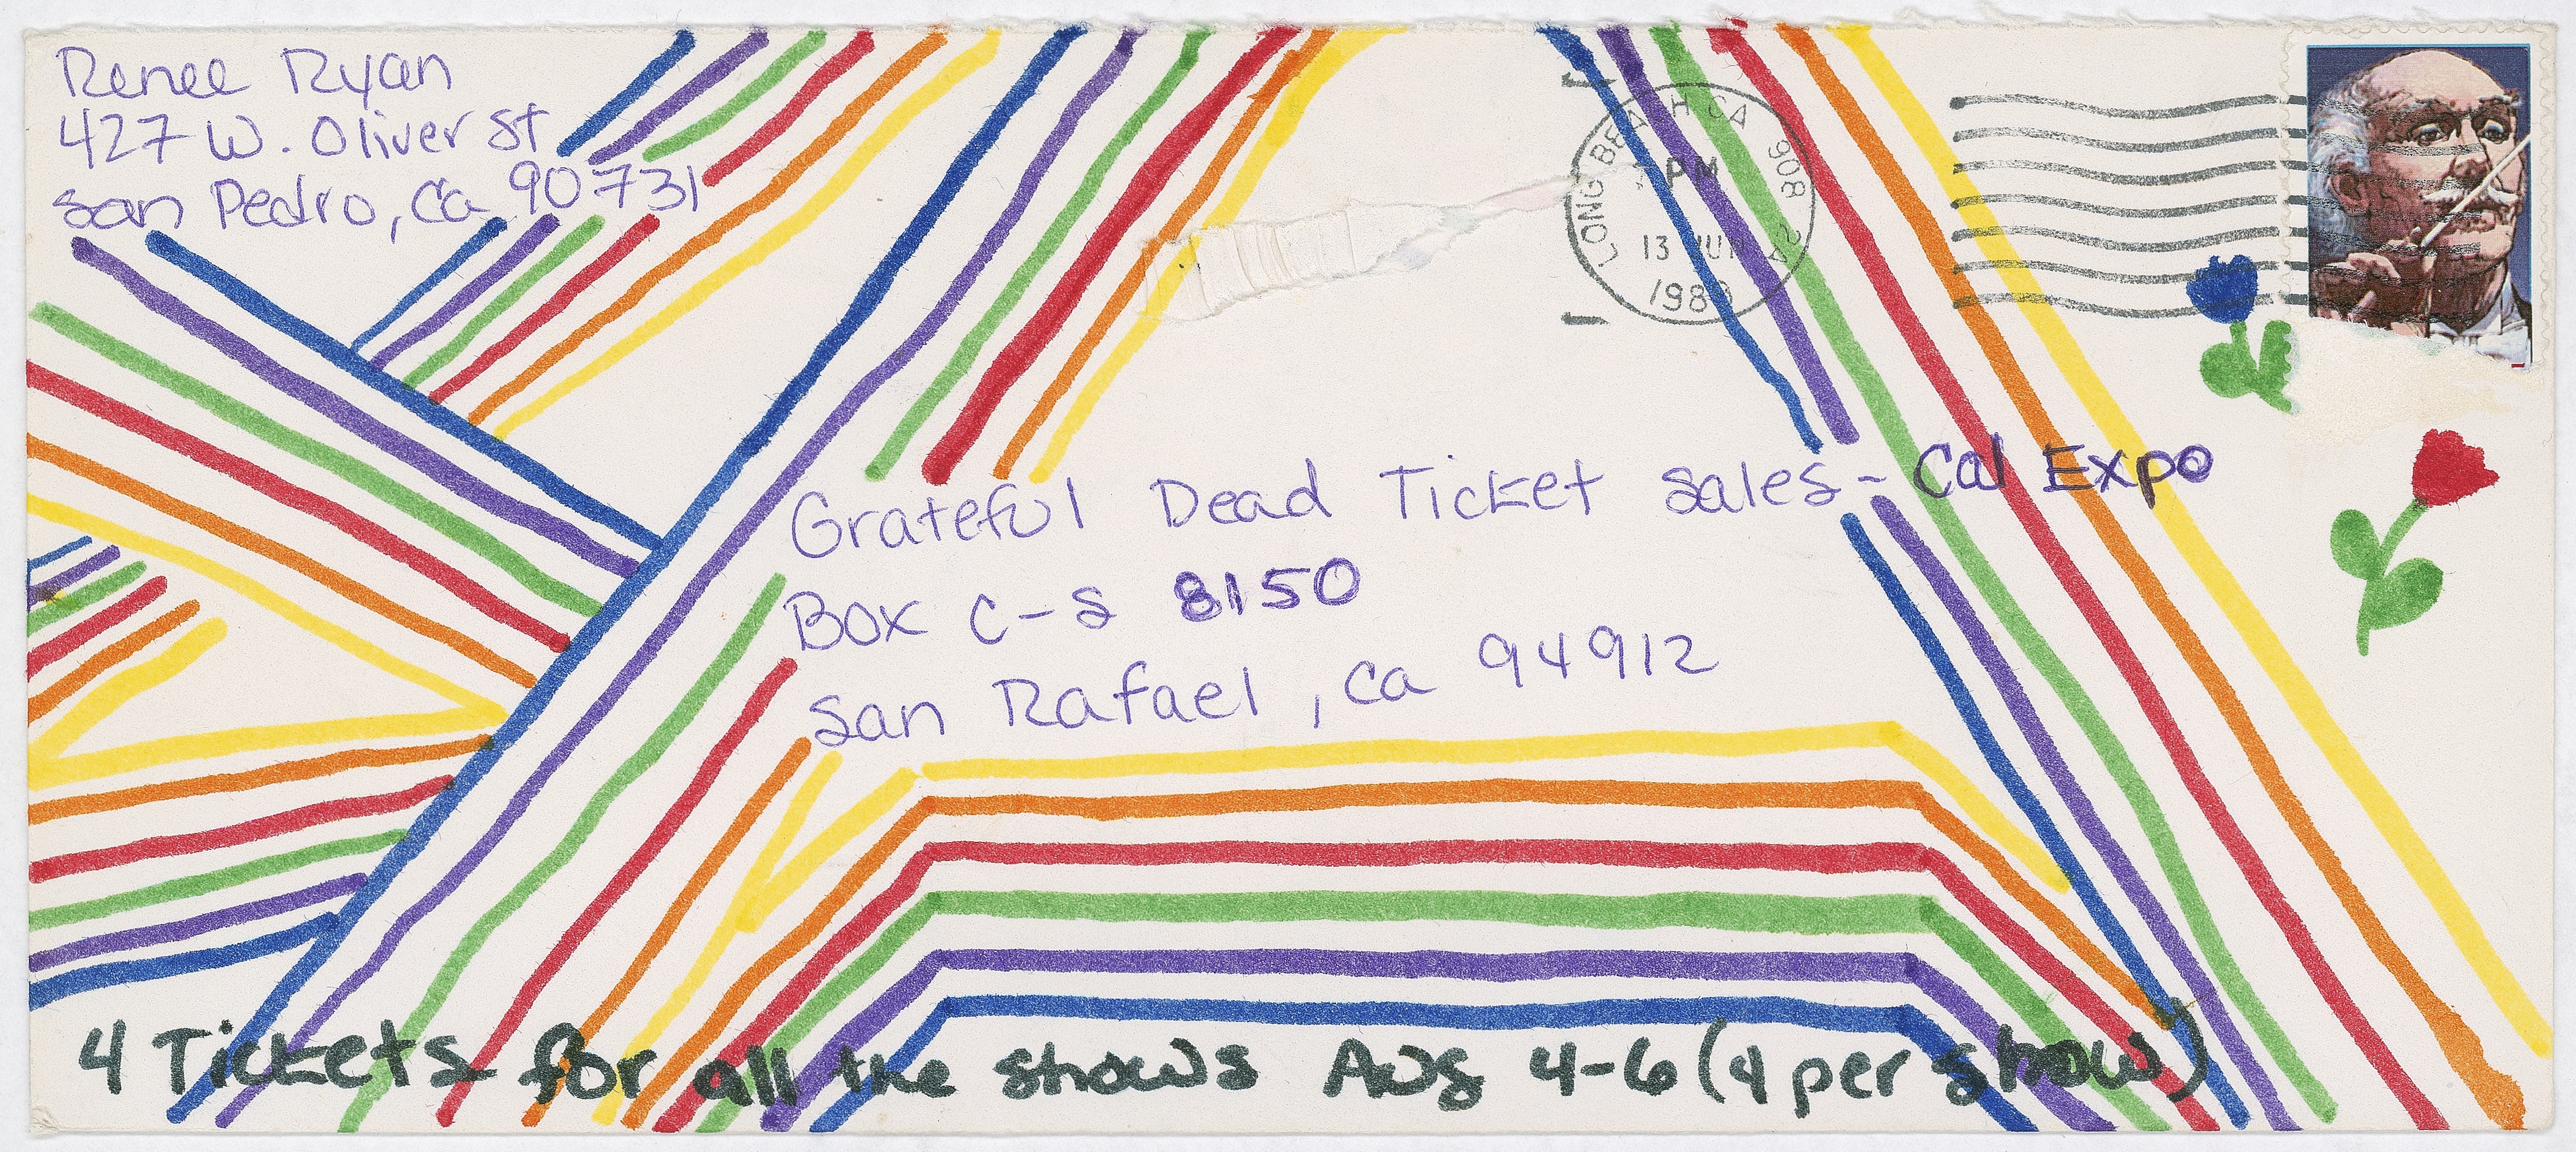 Renee Ryan
427 W. Oliver St
San Pedro, Ca 90731
LONG BEACH CA 908
PM
13 JUN
1989
Grateful Dead Ticket Sales - Cal Expo
Box C-S 8150
San Rafael, Ca 94912
4 Tickets for all the shows Aug 4-6 (4 per show)